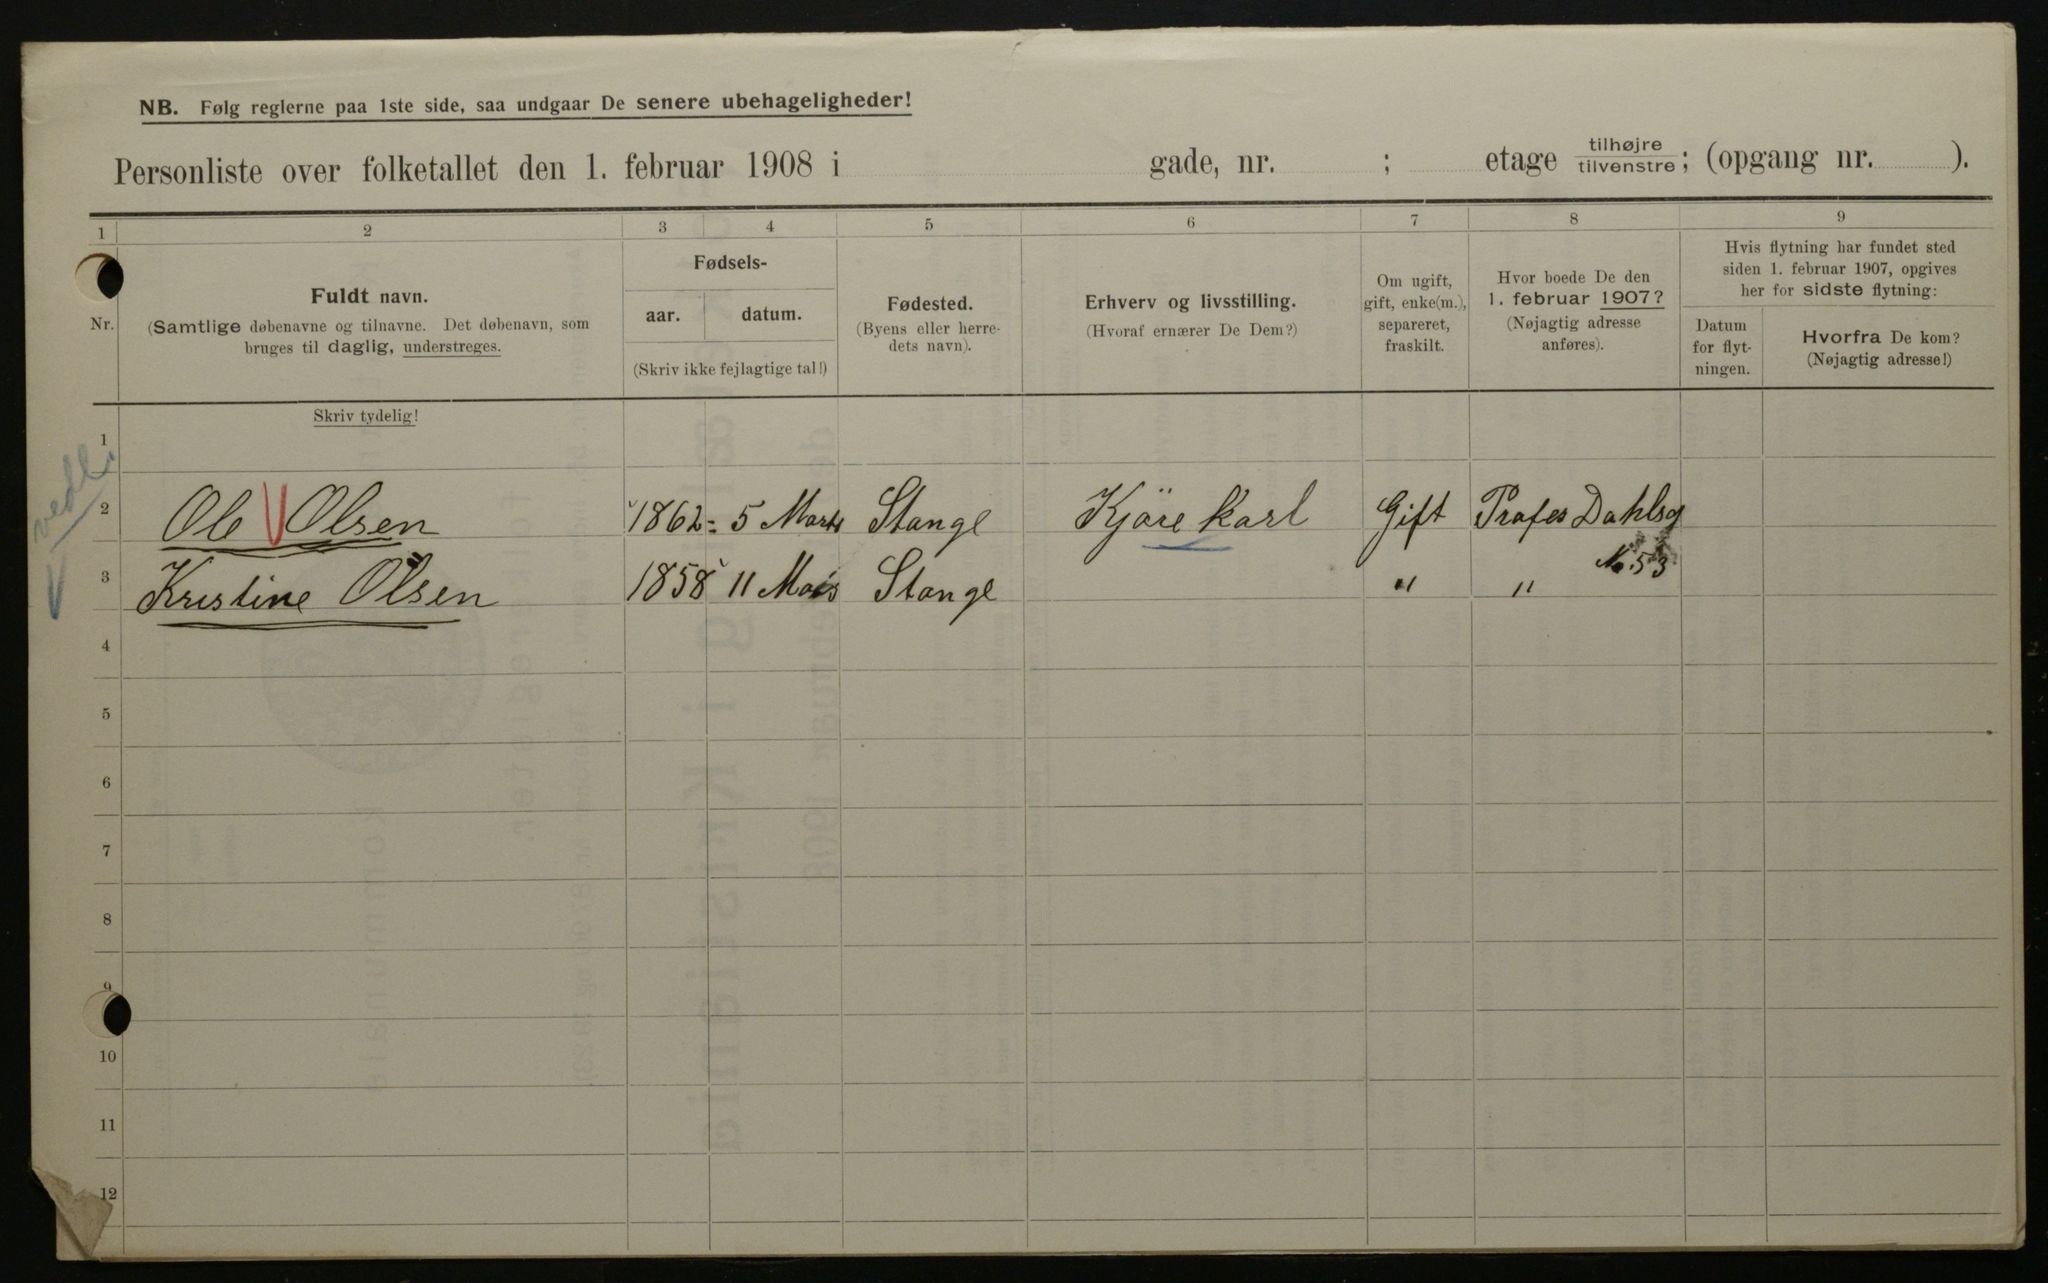 NB. Følg reglerne paa 1ste side, saa undgaar De senere ubehageligheder!
Personliste over folketallet den 1. februar 1908 i gade, nr. ; etage tilhøjre tilvenstre; (opgang nr. ).
1 2 3 4 5 6 7 8 9
Nr.
Fuldt navn.
(Samtlige døbenavne og tilnavne. Det døbenavn, som
bruges til daglig, understreges.
Fødsels-
aar. datum.
(Skriv ikke fejlagtige tal!)
Fødested.
(Byens eller herre-
dets navn).
Erhverv og livsstilling.
(Hvoraf ernærer De Dem?)
Om ugift,
gift, enke(m.),
separeret,
fraskilt.
Hvor boede De den
1. februar 1907?
(Nøjagtig adresse
anføres).
Hvis flytning har fundet sted
siden 1. februar 1907, opgives
her for sidste flytning:
Datum
for flyt-
ningen.
Hvorfra De kom?
(Nøjagtig adresse!)
Skriv tydelig!
1
2 Ole Olsen 1862 5 Marts Stange Kjöre karl Gift Profes Dahlsg
No. 53
3 Kristine Olsen 1858 11 Stange " "
4
5
6
7
8
9
10
11
12